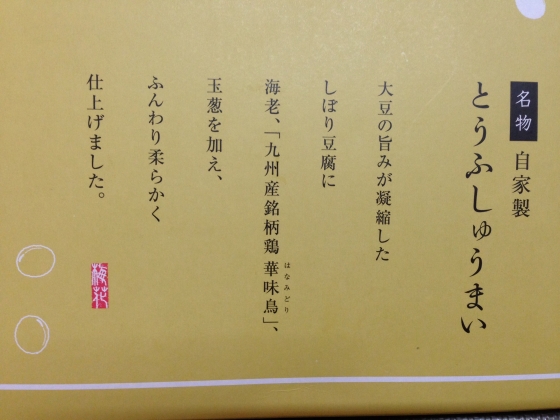 名物 自家製
とうふしゅうまい
大豆の旨みが凝縮した
しぼり豆腐に
海老、「九州産銘柄鶏 華味鳥」、
はなみどり
玉葱を加え、
ふんわり柔らかく
仕上げました。
梅花